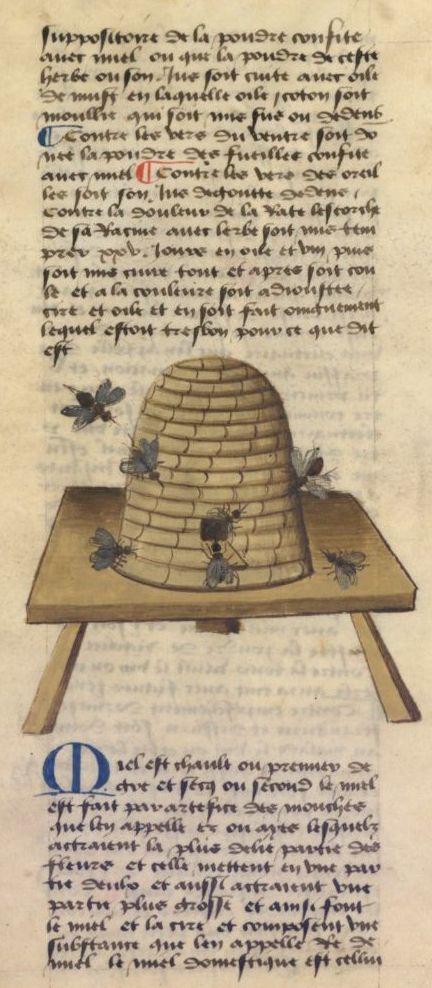 suppositoire de la pouldre confite
avec miel ou que la pouldre de ceste
herbe ou son Jus soit cuite avec oile
de musc en laquelle oile coton soit
moullie qui soit mis sus ou dedens
Contre les vers du ventre soit do
nee la pouldre des fueilles confite
avec miel Contre les vers des oreil
les soit son Jus degoutte dedens
Contre la douleur de la Rate lescorche
de sa Racine avec lerbe soit mis tem
prer xxv Jours en oile et vin puis
soit mis cuire tout et apres soit cou
le et a la couleure soit adioustee
cire et oile et en soit fait oinguement
lequel estoit tresbon pour ce que dit
est
Miel est chault ou premier de
gre et secq ou second le miel
est fait par artefice des mouches
que len appelle ez ou ayes lesquelz
actraient la plus deliee partie des
fleurs et celle mettent en une par
tie et aussi actraient une
partie plus grosse et ainsi font
le miel et la cire et composent une
substance que len appelle Re de
miel le miel domestique est cellui